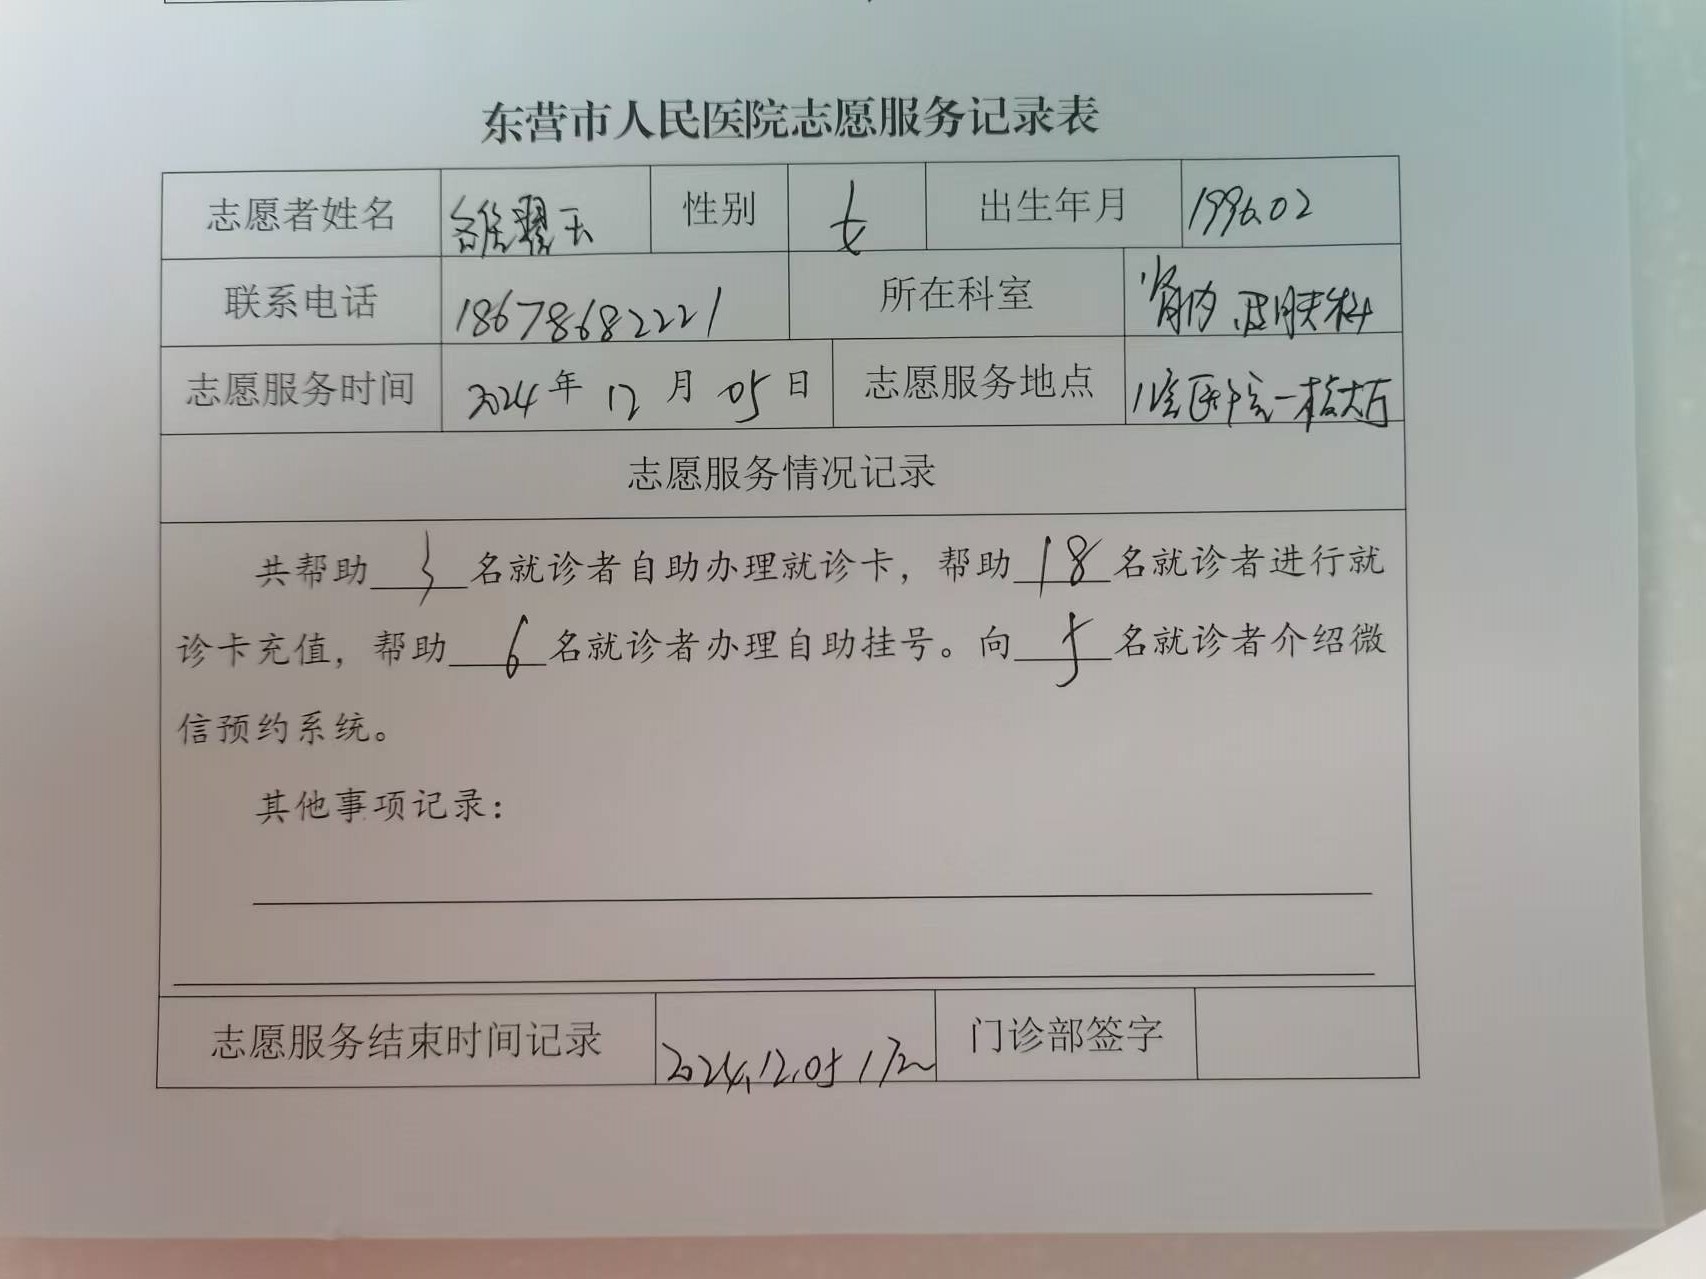 东营市人民医院志愿服务记录表
志愿者姓名 雒翟玉 性别 女 出生年月 1996.02
联系电话 18678682221 所在科室 肾内、皮肤科
志愿服务时间 2024年12月05日 志愿服务地点 医院一楼大厅
志愿服务情况记录
共帮助 3 名就诊者自助办理就诊卡，帮助 18 名就诊者进行就
诊卡充值，帮助 6 名就诊者办理自助挂号。向 5 名就诊者介绍微
信预约系统。
其他事项记录：
志愿服务结束时间记录 2024.12.05 门诊部签字